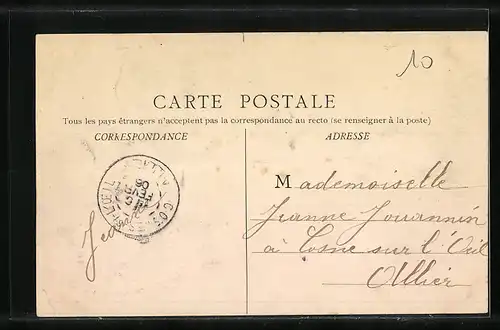 10
CARTE POSTALE
Tous les pays étrangers n'acceptent pas la correspondance au recto (se renseigner à la poste)
CORRESPONDANCE
ADRESSE
Mademoiselle
Jeanne Jouannin
à Cosne sur l'Œil
Allier